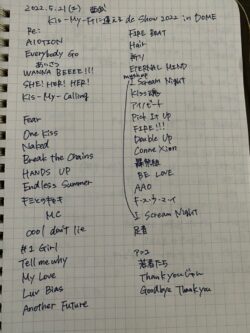 2022.5.21(土)
Kis-My-Ftに逢える de Show 2022 in DOME
Re:
AIOTION
Everybody Go
あいさつ
WANNA BEEEE!!!
SHE! HER! HER!
Kis-My-Calling
Fear
One Kiss
Naked
Break the Chains
HANDS UP
Endless Summer
キミとのキセキ
M.C
cool don't lie
#1 Girl
Tell me why
My Love
Luv Bias
Another Future
FREE Beat
Hair
祈り
ETERNAL MIND
I Scream Night
Kiss魂
アイノビート
Pick It Up
FIRE!!!
Double Up
ConneXion
BE LOVE
AAO
F-ス-ラ-マ-イ
I Scream Night
足音
アンコ
若者たち
Thank youじゃん
Goodbye Thank you